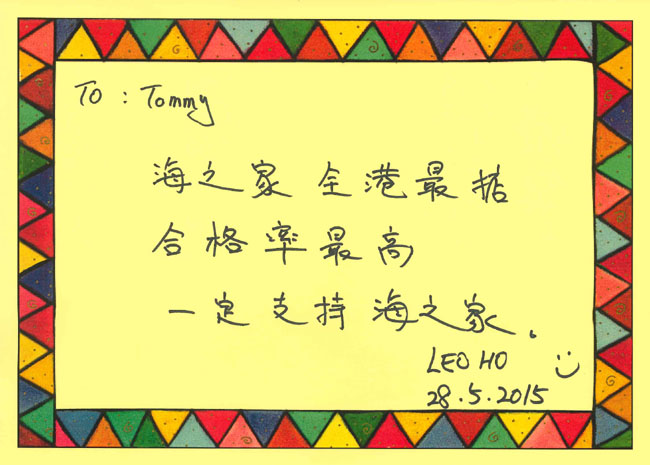 TO : Tommy
海之家 全港最掂
合格率最高
一定支持海之家.
LEO HO :)
28.5.2015